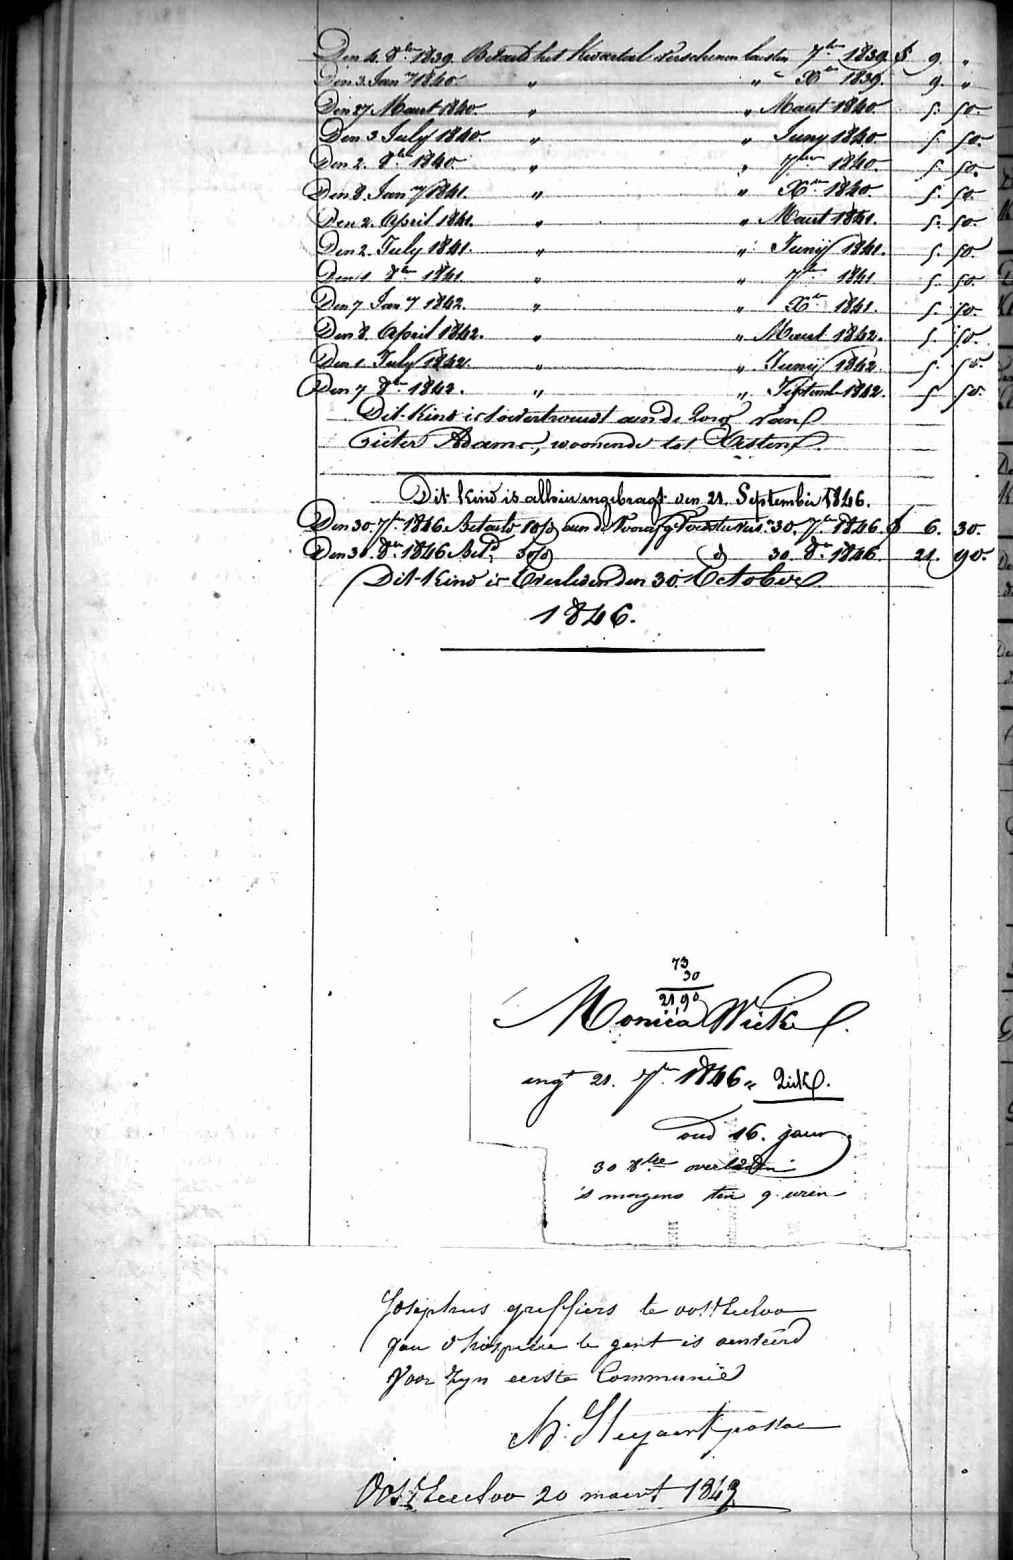 Den 4. 8bre 1839. Betaald het Kwartael verschenen laesten 7bre 1839 $ 9. "
Den 3. Jan y 1840. " " Xbre 1839. 9. "
Den 27 Maert 1840. " " Maert 1840. 5. 50.
Den 3. July 1840. " " Juny 1840. 5. 50.
Den 2. 8bre 1840. " " 7bre 1840. 5. 50.
Den 8. Jan y 1841. " " Xbre 1840. 5. 50.
Den 2. April 1841. " " Maert 1841. 5. 50.
Den 2. July 1841. " " Junij 1841. 5. 50.
Den 1. 8bre 1841. " " 7bre 1841 5. 50.
Den 7 Jan y 1842. " " Xbre 1841. 5. 50.
Den 8. April 1842. " " Maert 1842. 5. 50.
Den 1. July 1842. " " Junij 1842. 5. 50.
Den 7 8bre 1842. " " Septemb 1842. 5 50.
Dit Kind is toevertrouwt aen de Zorg van
Pieter Adams, woonende tot
Dit kind is alhier ingebragt den 21. September 1846.
Den 30. 7bre 1846. Betaeld 30. 7bre 1846. $ 6. 30.
Den 30. 8bre 1846. Betd do 30. 8bre 1846. 21. 90.
Dit Kind is Overleden den 30. October
1846.
73
30
21,90
Monica
ingt 21. 7bre 1846. Ziek.
oud 16. jaer
30 8bre overleden
's morgens ten 9. uren
Josephus greffiers te oosteecloo
van d'hospitie te gent is aenveerd
voor zyn eerste Communië
Oosteecloo 20 maert 1843